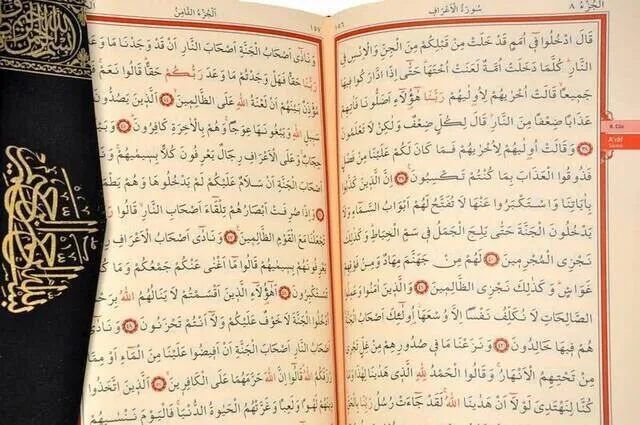 اَلْجُزْءُ ٨
سُورَةُ الْاَعْرَافِ
١٥٤
قَالَ ادْخُلُوا فِي اُمَمٍ قَدْ خَلَتْ مِنْ قَبْلِكُمْ مِنَ الْجِنِّ وَالْاِنْسِ فِي
النَّارِ كُلَّمَا دَخَلَتْ اُمَّةٌ لَعَنَتْ اُخْتَهَا حَتّٰى اِذَا ادَّارَكُوا فِيهَا
جَمِيعًا قَالَتْ اُخْرٰيهُمْ لِاُولٰيهُمْ رَبَّنَا هٰٓؤُلَاءِ اَضَلُّونَا فَاٰتِهِمْ
عَذَابًا ضِعْفًا مِنَ النَّارِ قَالَ لِكُلٍّ ضِعْفٌ وَلٰكِنْ لَا تَعْلَمُونَ
٣٨ وَقَالَتْ اُولٰيهُمْ لِاُخْرٰيهُمْ فَمَا كَانَ لَكُمْ عَلَيْنَا مِنْ فَضْلٍ
فَذُوقُوا الْعَذَابَ بِمَا كُنْتُمْ تَكْسِبُونَ ٣٩ اِنَّ الَّذِينَ كَذَّبُوا
بِاٰيَاتِنَا وَاسْتَكْبَرُوا عَنْهَا لَا تُفَتَّحُ لَهُمْ اَبْوَابُ السَّمَاءِ وَلَا
يَدْخُلُونَ الْجَنَّةَ حَتّٰى يَلِجَ الْجَمَلُ فِي سَمِّ الْخِيَاطِ وَكَذٰلِكَ
نَجْزِي الْمُجْرِمِينَ ٤٠ لَهُمْ مِنْ جَهَنَّمَ مِهَادٌ وَمِنْ فَوْقِهِمْ
غَوَاشٍ وَكَذٰلِكَ نَجْزِي الظَّالِمِينَ ٤١ وَالَّذِينَ اٰمَنُوا وَعَمِلُوا
الصَّالِحَاتِ لَا نُكَلِّفُ نَفْسًا اِلَّا وُسْعَهَا اُولٰٓئِكَ اَصْحَابُ الْجَنَّةِ
هُمْ فِيهَا خَالِدُونَ ٤٢ وَنَزَعْنَا مَا فِي صُدُورِهِمْ مِنْ غِلٍّ تَجْرِي
مِنْ تَحْتِهِمُ الْاَنْهَارُ وَقَالُوا الْحَمْدُ لِلّٰهِ الَّذِي هَدٰينَا لِهٰذَا وَمَا
كُنَّا لِنَهْتَدِيَ لَوْلَا اَنْ هَدٰينَا اللّٰهُ لَقَدْ جَاءَتْ رُسُلُ رَبِّنَا بِالْحَقِّ
8. Cüz
A'râf
Sûresi
اَلْجُزْءُ الثَّامِنُ
وَنَادٰى اَصْحَابُ الْجَنَّةِ اَصْحَابَ النَّارِ اَنْ قَدْ وَجَدْنَا مَا وَعَدَنَا
رَبُّنَا حَقًّا فَهَلْ وَجَدْتُمْ مَا وَعَدَ رَبُّكُمْ حَقًّا قَالُوا نَعَمْ
مُؤَذِّنٌ بَيْنَهُمْ اَنْ لَعْنَةُ اللّٰهِ عَلَى الظَّالِمِينَ ٤٤ اَلَّذِينَ يَصُدُّونَ
سَبِيلِ اللّٰهِ وَيَبْغُونَهَا عِوَجًا وَهُمْ بِالْاٰخِرَةِ كَافِرُونَ ٤٥ وَبَيْنَهُمَا
حِجَابٌ وَعَلَى الْاَعْرَافِ رِجَالٌ يَعْرِفُونَ كُلًّا بِسِيمٰيهُمْ وَنَادَوْا
اَصْحَابَ الْجَنَّةِ اَنْ سَلَامٌ عَلَيْكُمْ لَمْ يَدْخُلُوهَا وَهُمْ يَطْمَعُونَ
وَاِذَا صُرِفَتْ اَبْصَارُهُمْ تِلْقَاءَ اَصْحَابِ النَّارِ قَالُوا رَبَّنَا
تَجْعَلْنَا مَعَ الْقَوْمِ الظَّالِمِينَ ٤٧ وَنَادٰى اَصْحَابُ الْاَعْرَافِ
يَعْرِفُونَهُمْ بِسِيمٰيهُمْ قَالُوا مَا اَغْنٰى عَنْكُمْ جَمْعُكُمْ وَمَا كُنْتُمْ
تَسْتَكْبِرُونَ ٤٨ اَهٰٓؤُلَاءِ الَّذِينَ اَقْسَمْتُمْ لَا يَنَالُهُمُ اللّٰهُ بِرَحْمَةٍ
اُدْخُلُوا الْجَنَّةَ لَا خَوْفٌ عَلَيْكُمْ وَلَا اَنْتُمْ تَحْزَنُونَ ٤٩ وَنَادٰى
اَصْحَابُ النَّارِ اَصْحَابَ الْجَنَّةِ اَنْ اَفِيضُوا عَلَيْنَا مِنَ الْمَاءِ اَوْ مِمَّا
رَزَقَكُمُ اللّٰهُ قَالُوا اِنَّ اللّٰهَ حَرَّمَهُمَا عَلَى الْكَافِرِينَ ٥٠ اَلَّذِينَ اتَّخَذُوا
دِينَهُمْ لَهْوًا وَلَعِبًا وَغَرَّتْهُمُ الْحَيٰوةُ الدُّنْيَا فَالْيَوْمَ نَنْسٰيهُمْ